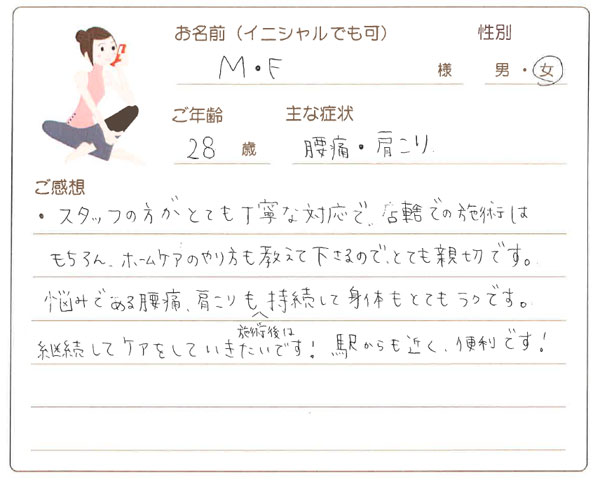 お名前（イニシャルでも可） 性別
M・F 様 男・女
ご年齢 主な症状
28 歳 腰痛・肩こり
ご感想
・スタッフの方がとても丁寧な対応で、店での施術は
もちろん、ホームケアのやり方も教えて下さるので、とても親切です。
悩みである腰痛、肩こりも 持続して身体もとてもラクです。
施術後は
継続してケアをしていきたいです！駅からも近く、便利です！